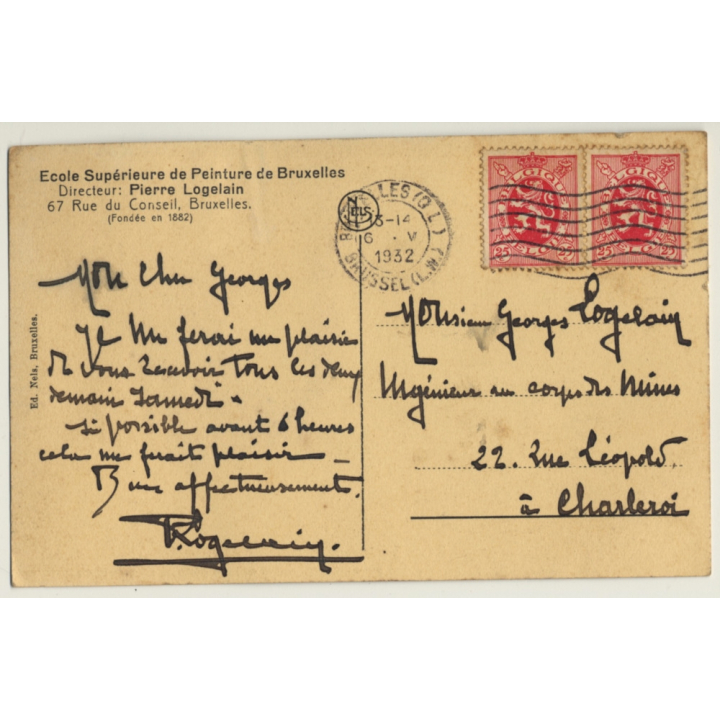 Ecole Supérieure de Peinture de Bruxelles
Directeur: Pierre Logelain
67 Rue du Conseil, Bruxelles.
(Fondée en 1882)
Ed. Nels, Bruxelles.
NELS
BRUXELLES (Q.L.)
13-14
6 V
1932
BRUSSEL (L.W.)
BELGIQUE
25 25
BELGIQUE
25 25
Mon Cher Georges
Je me ferai un plaisir
de vous recevoir tous les deux
demain Samedi.
si possible avant 6 heures
cela me ferait plaisir _
Bien affectueusement.
P. Logelain.
Monsieur Georges Logelain
Ingénieur au corps des Mines
22. Rue Léopold.
à Charleroi